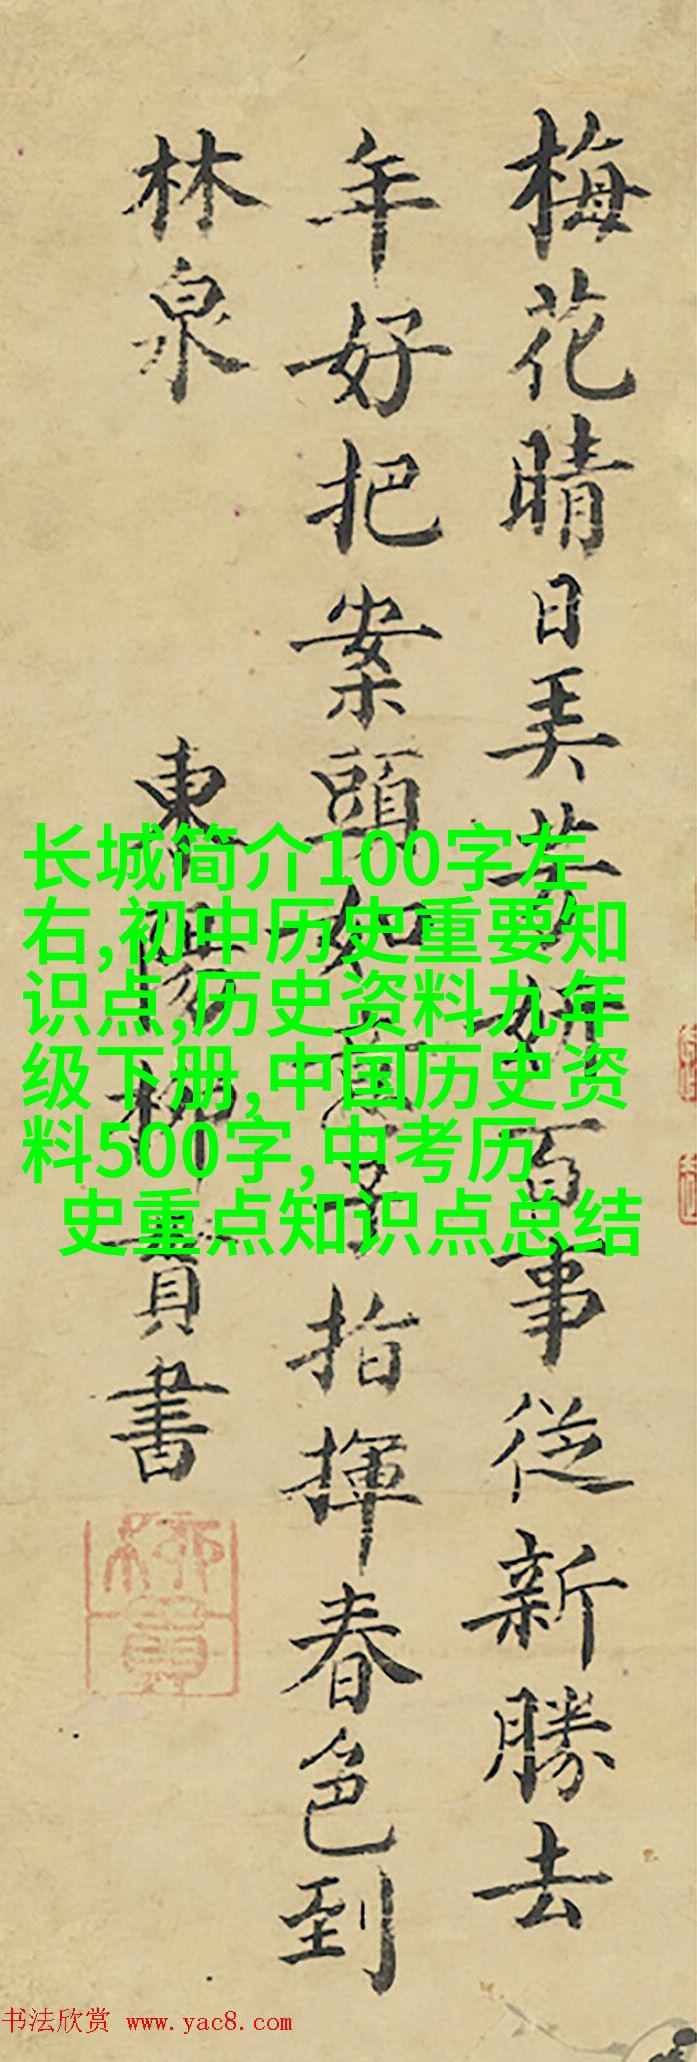 梅花晴日美芳妍百事從新勝去
年好把案頭如意子指揮春色到
林泉
東陽柳貫書
柳貫
长城简介100字左
右,初中历史重要知
识点,历史资料九年
级下册,中国历史资
料500字,中考历
史重点知识点总结
书法欣赏 www.yac8.com